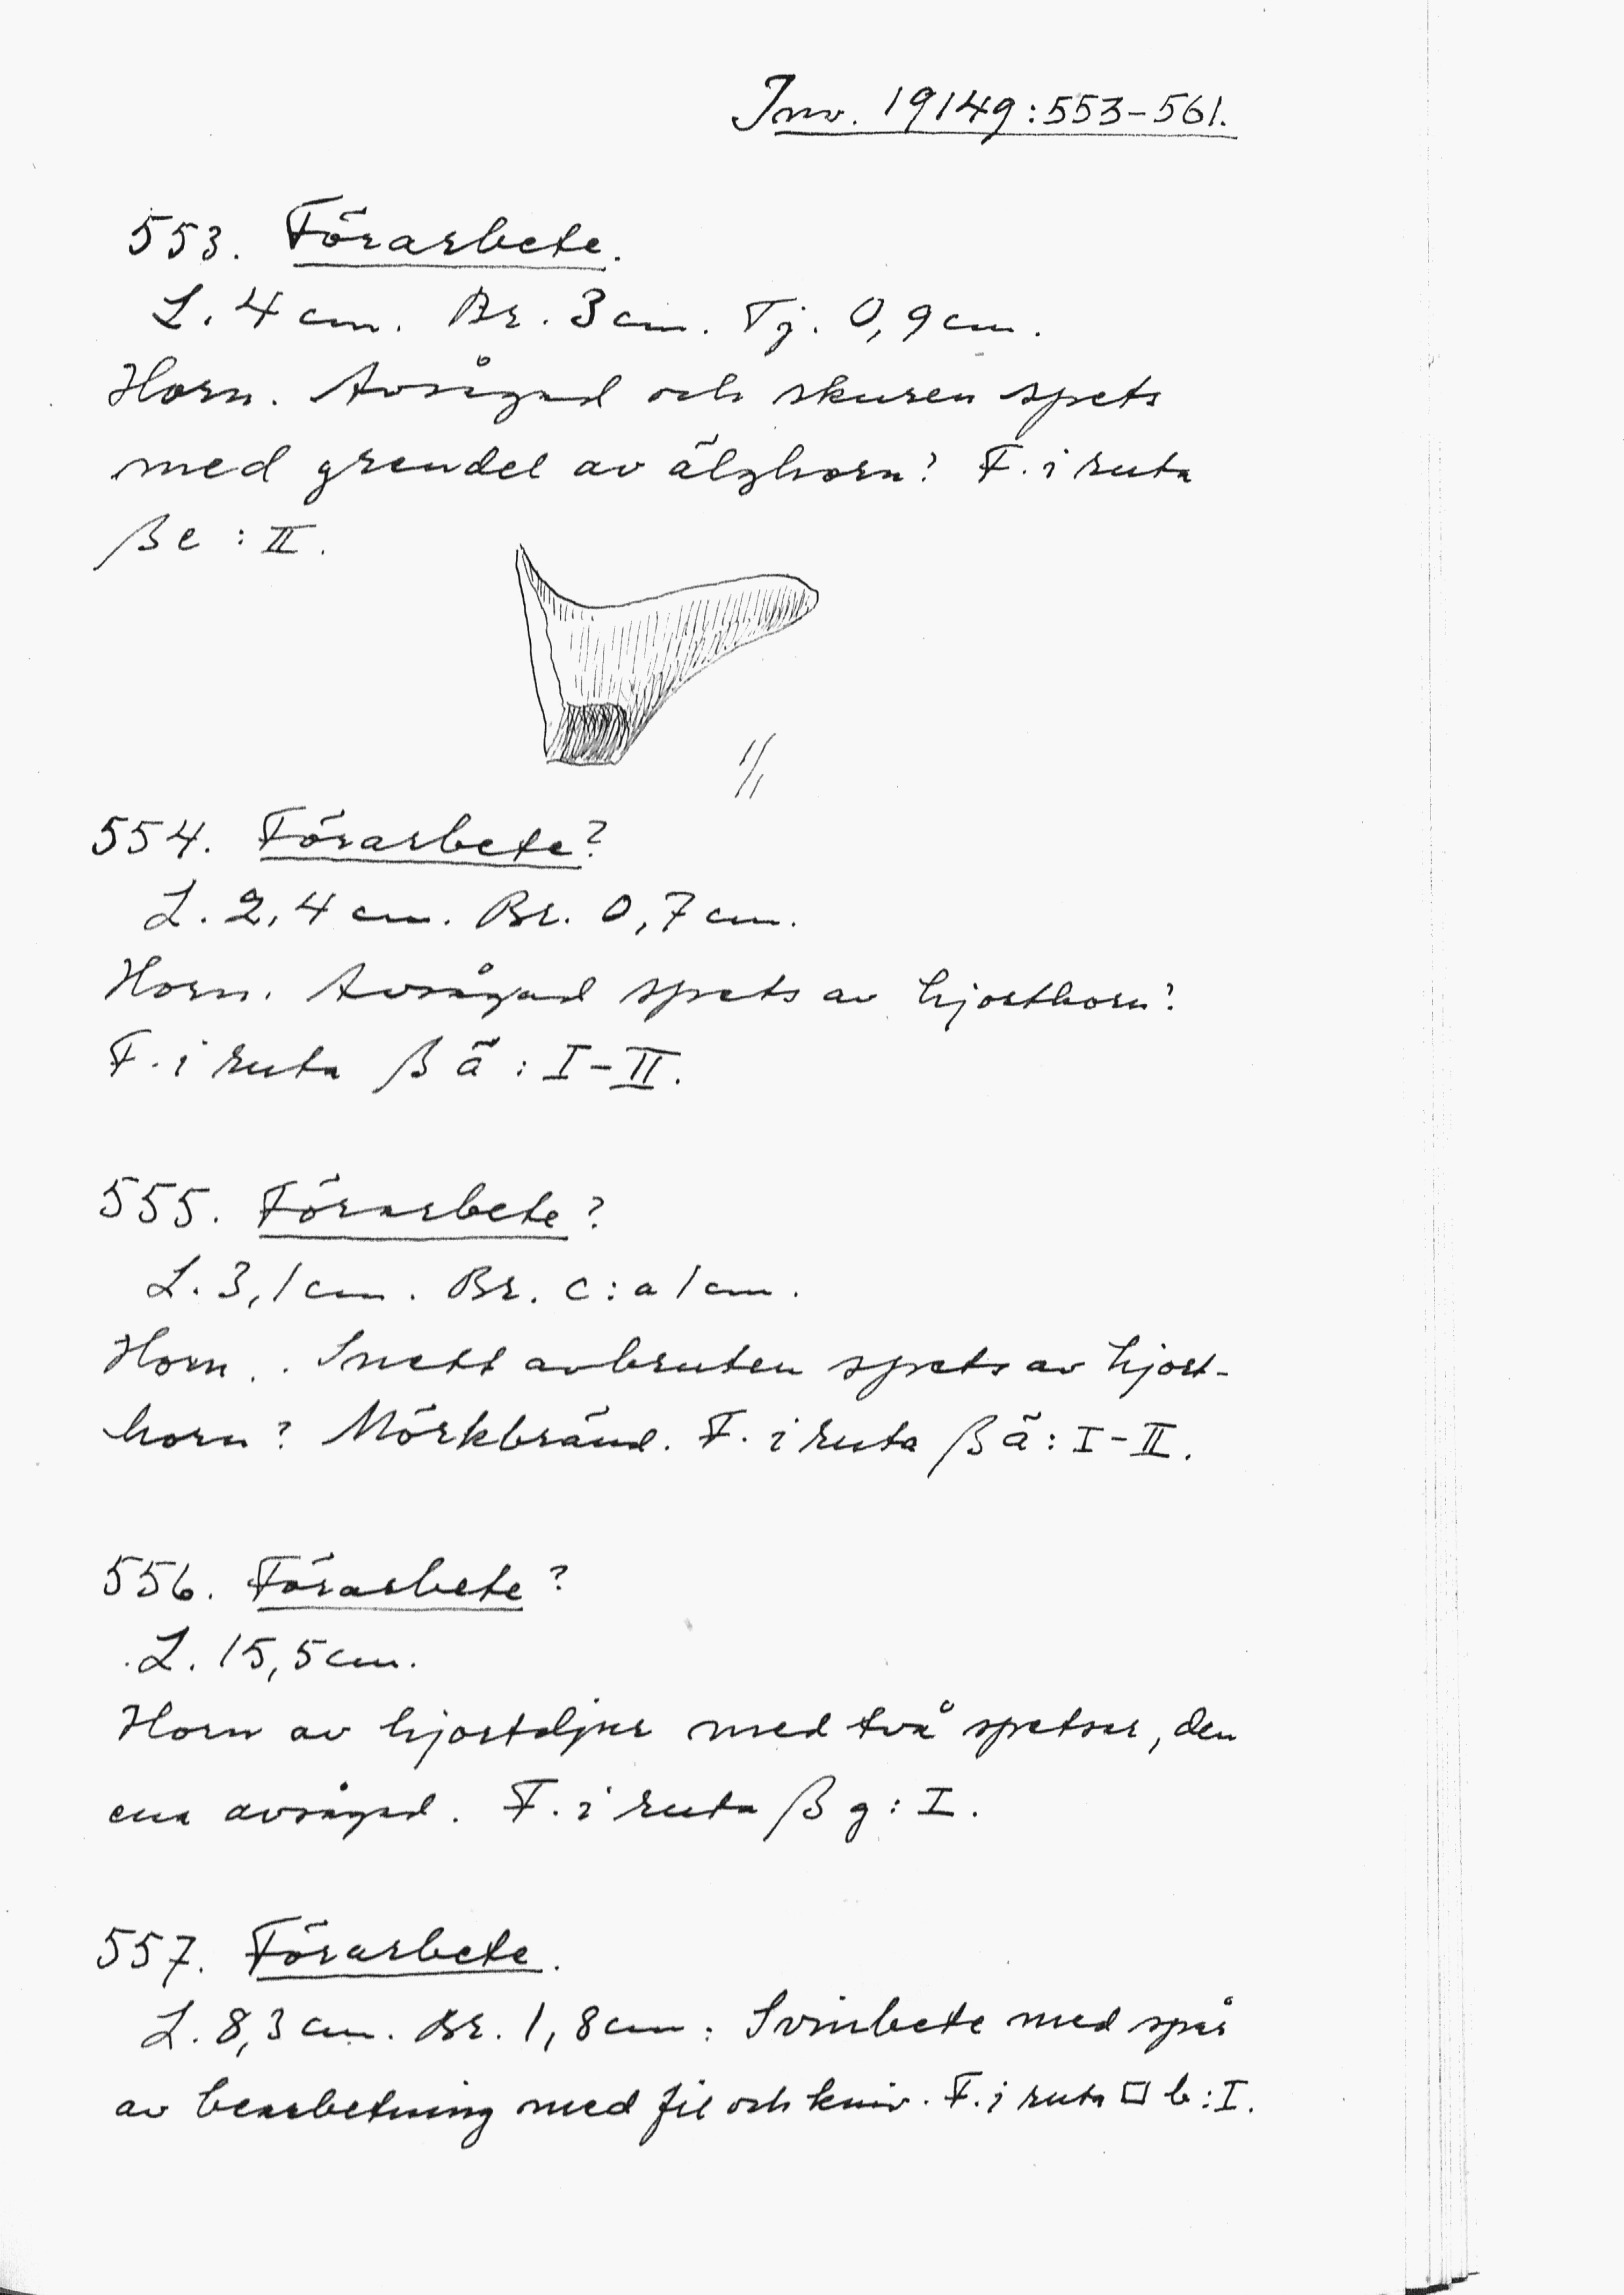 Inv. 19149:553-561.
553. Förarbete.
L. 4 cm. Br. 3 cm. Tj. 0,9 cm.
Horn. Avsågad och skuren spets
med grendel av älghorn? F. i ruta
β e : II.
1/1
554. Förarbete?
L. 2,4 cm. Br. 0,7 cm.
Horn. Avsågad spets av hjorthorn?
F. i ruta β ä : I-II.
555. Förarbete?
L. 3,1 cm. Br. c:a 1 cm.
Horn. . Snett avbruten spets av hjort-
horn? Mörkbränd. F. i ruta β ä : I-II.
556. Förarbete?
L. 15,5 cm.
Horn av hjortdjur med två spetsar, den
ena avsågad. F. i ruta β g : I.
557. Förarbete.
L. 8,3 cm. Br. 1,8 cm. Svinbete med spår
av bearbetning med fil och kniv. F. i ruta □ b : I.